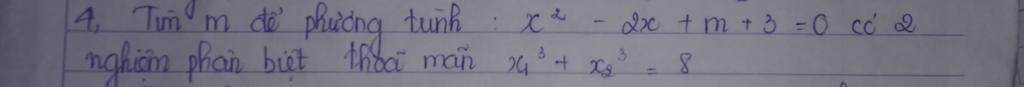 4, Tìm m để phương trình : x² - 2x + m + 3 = 0 có 2
nghiệm phân biệt thoả mãn x₁³ + x₂³ = 8